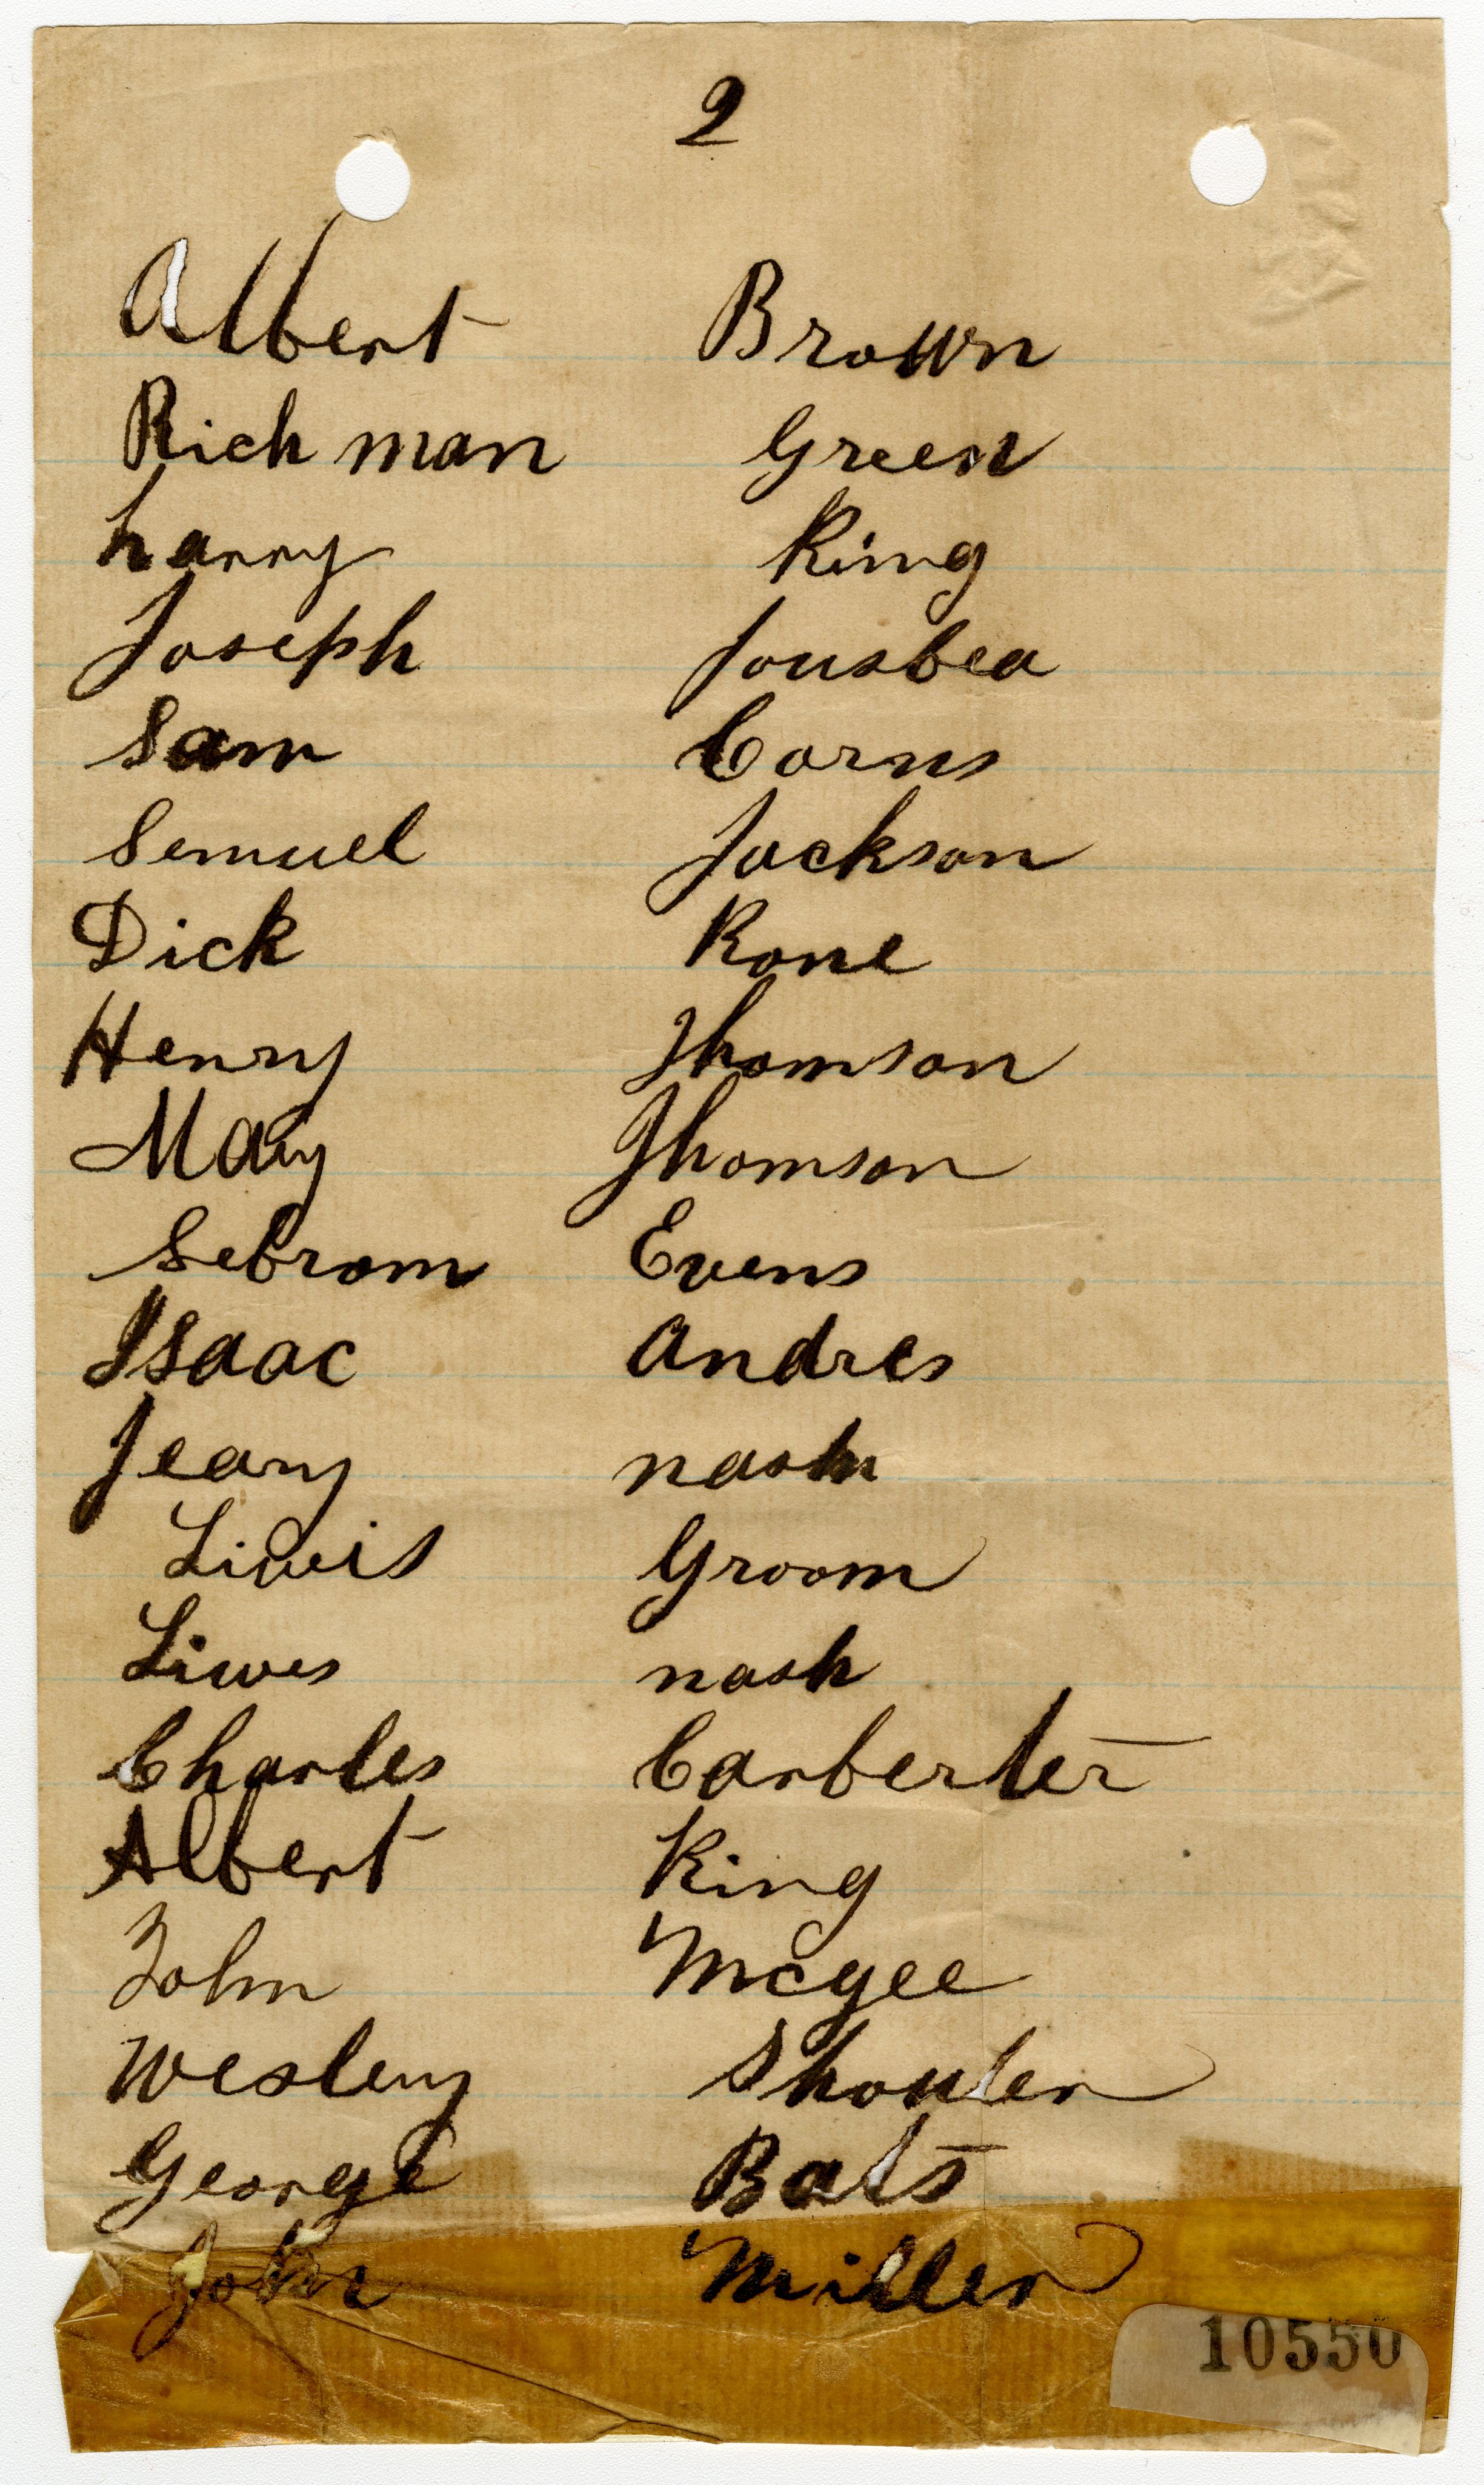 2
Albert Brown
Rich man Green
harry King
Joseph Jousbea
Sam Corns
Semuel Jackson
Dick Rone
Henry Thomson
Mary Thomson
Sebrom Evens
Isaac Andres
Jeary nash
Liwis Groom
Liwes nash
Charles Carberter
Albert King
John Mcgee
Wesley Shouter
George Bats
John Miller
10550